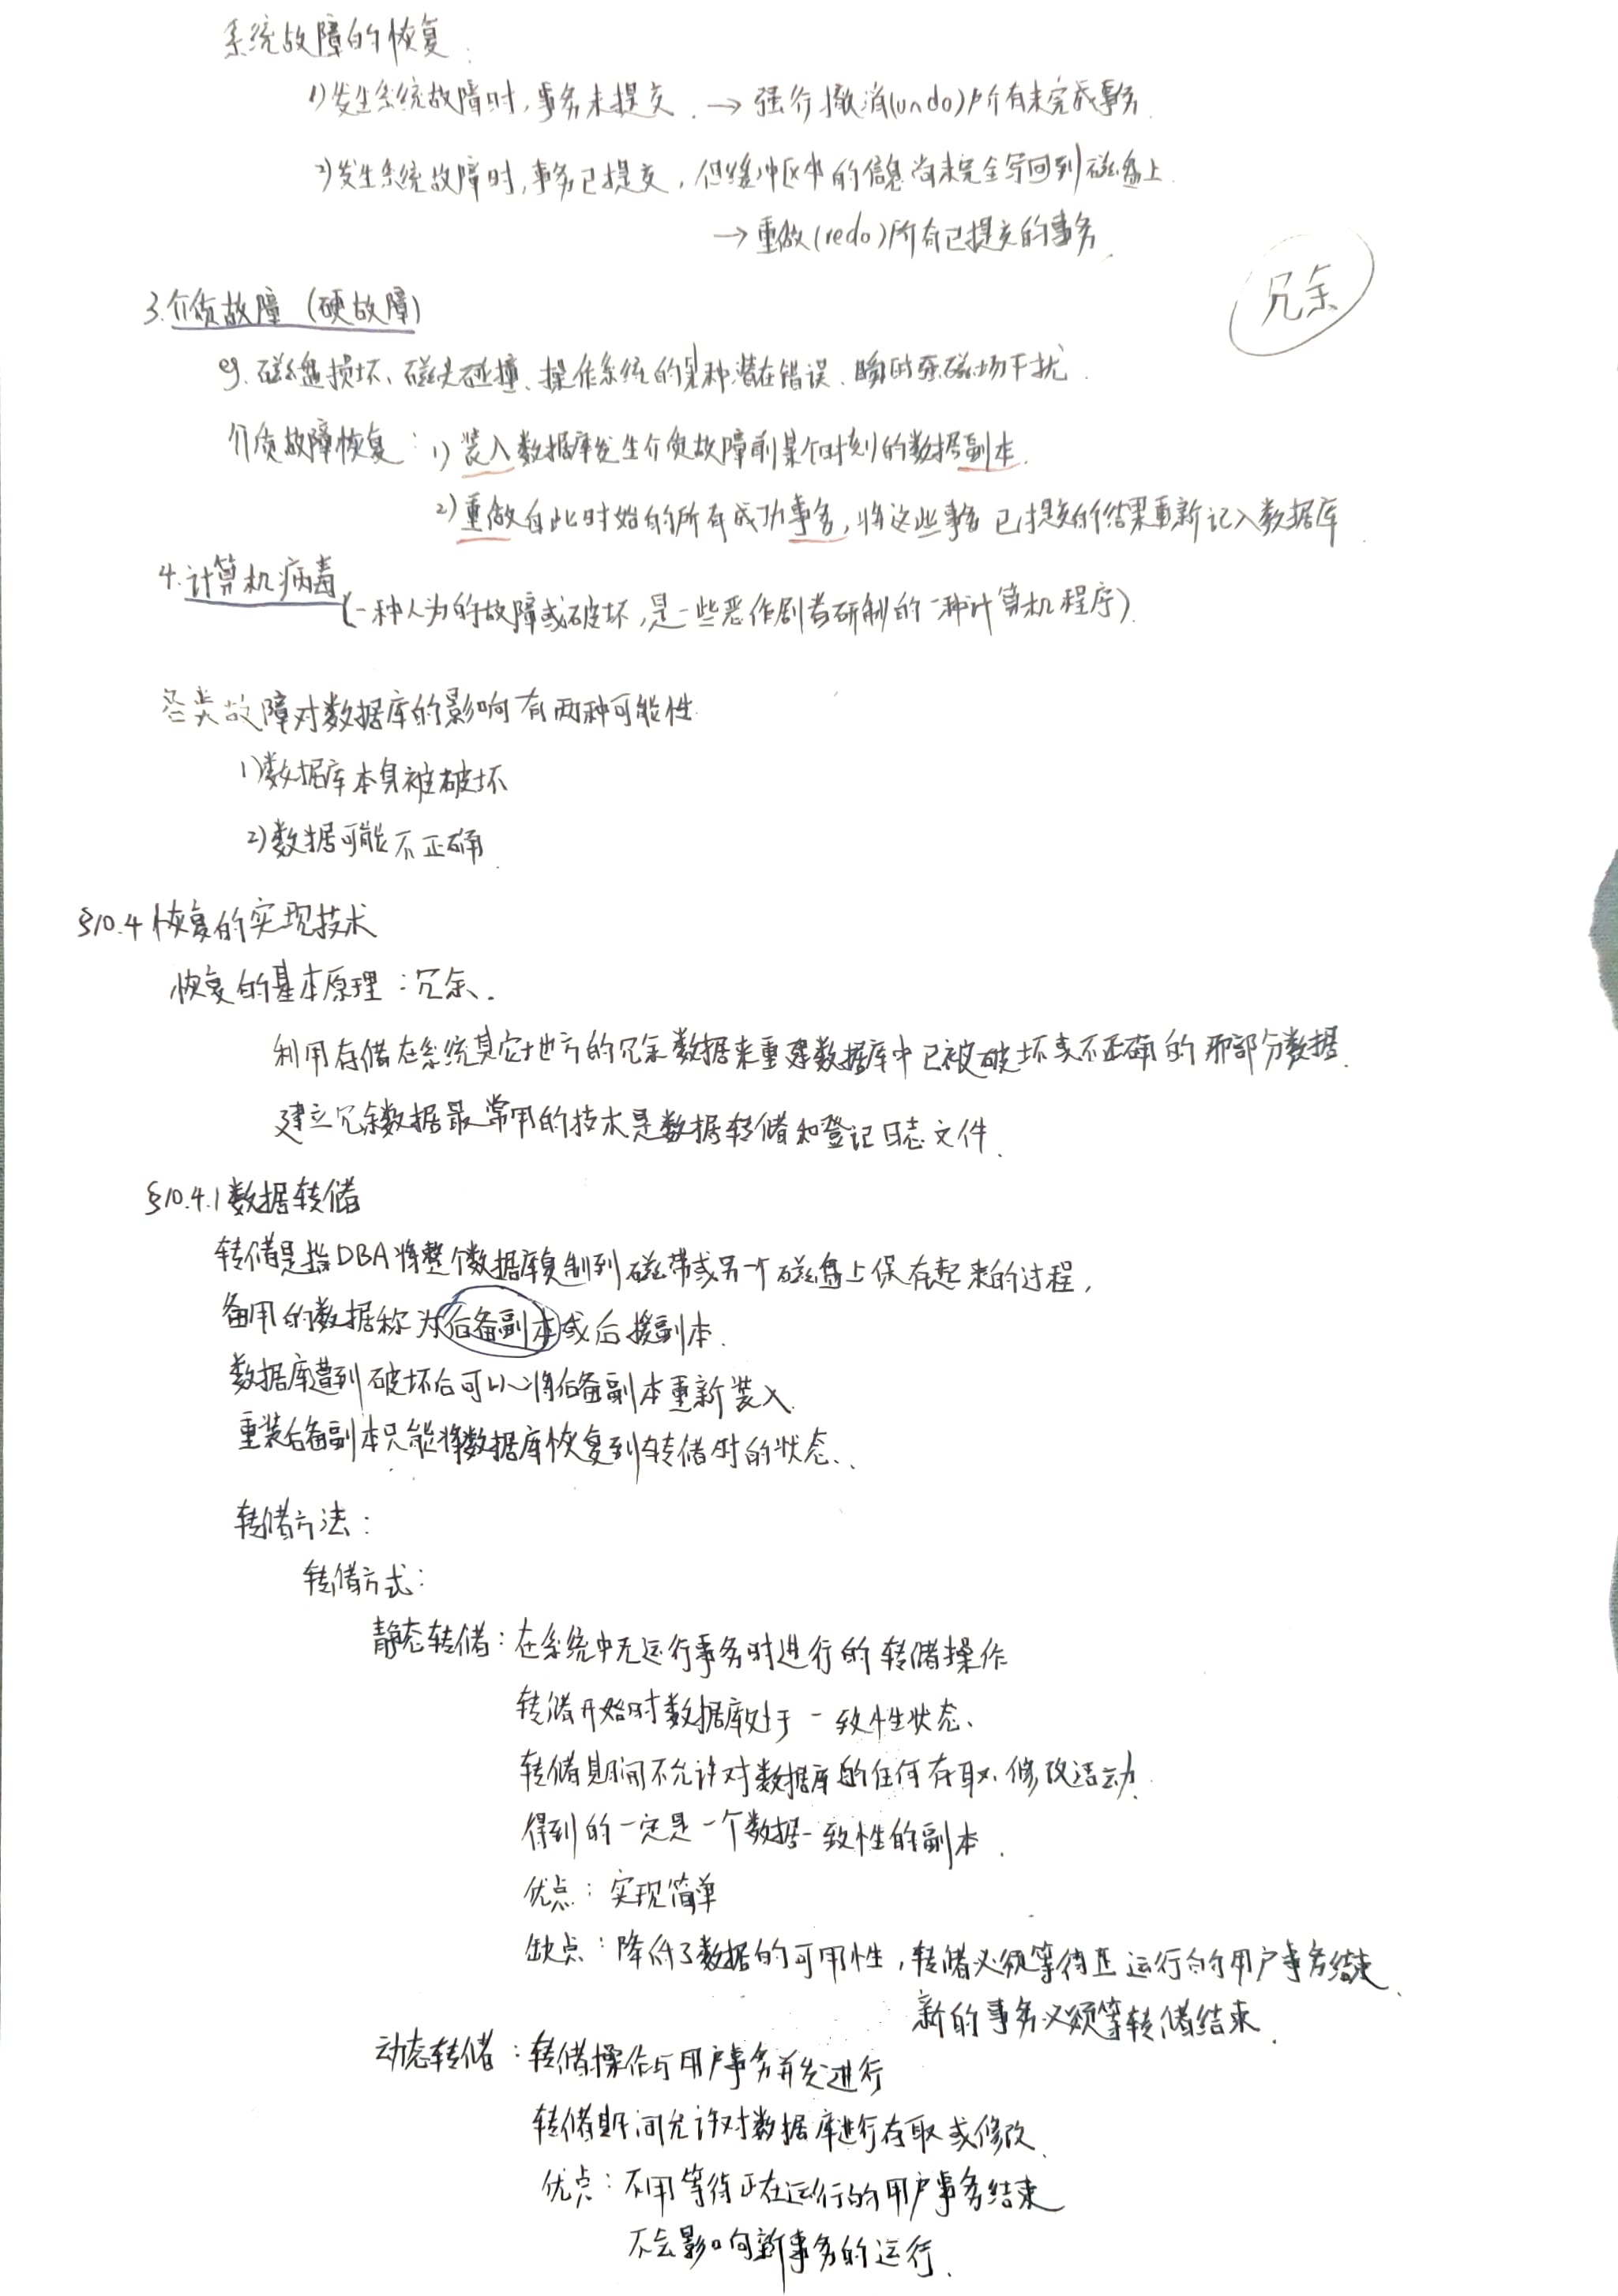 系统故障的恢复:
1)发生系统故障时,事务未提交. → 强行撤消(undo)所有未完成事务.
2)发生系统故障时,事务已提交,但缓冲区中的信息尚未完全写回到磁盘上.
→ 重做(redo)所有已提交的事务.
冗余
3.介质故障 (硬故障)
eg.磁盘损坏、磁头碰撞、操作系统的某种潜在错误、瞬时强磁场干扰.
介质故障恢复:1)装入数据库发生介质故障前某个时刻的数据副本.
2)重做自此时始的所有成功事务,将这些事务已提交的结果重新记入数据库.
4.计算机病毒(一种人为的故障或破坏,是一些恶作剧者研制的一种计算机程序).
各类故障对数据库的影响有两种可能性
1)数据库本身被破坏
2)数据可能不正确.
§10.4 恢复的实现技术
恢复的基本原理:冗余.
利用存储在系统其它地方的冗余数据来重建数据库中已被破坏或不正确的那部分数据.
建立冗余数据最常用的技术是数据转储和登记日志文件.
§10.4.1 数据转储
转储是指DBA将整个数据库复制到磁带或另一个磁盘上保存起来的过程,
备用的数据称为后备副本或后援副本.
数据库遭到破坏后可以将后备副本重新装入.
重装后备副本只能将数据库恢复到转储时的状态.
转储方法:
转储方式:
静态转储:在系统中无运行事务时进行的转储操作
转储开始时数据库处于一致性状态、
转储期间不允许对数据库的任何存取、修改活动.
得到的一定是一个数据一致性的副本.
优点:实现简单
缺点:降低了数据的可用性,转储必须等待正运行的用户事务结束.
新的事务必须等转储结束.
动态转储:转储操作与用户事务并发进行
转储期间允许对数据库进行存取或修改.
优点:不用等待正在运行的用户事务结束
不会影响新事务的运行.